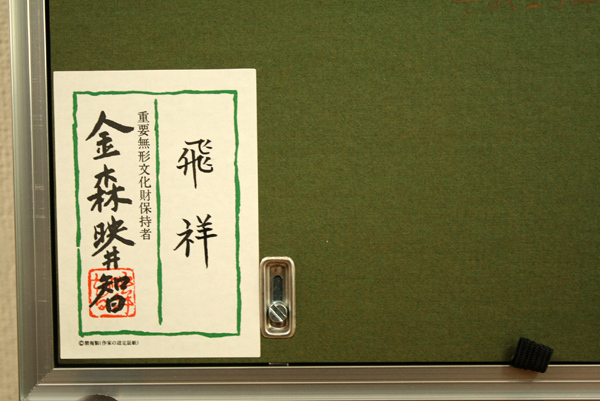 飛祥
重要無形文化財保持者
金森映井智